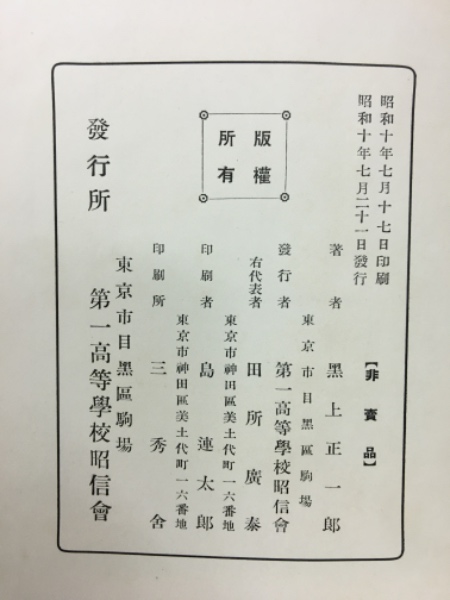 昭和十年七月十七日印刷
昭和十年七月二十一日發行
【非賣品】
版權
所有
著者 黑上正一郎
東京市目黑區駒場
發行者 第一高等學校昭信會
右代表者 田所廣泰
東京市神田區美土代町一六番地
印刷者 島連太郎
東京市神田區美土代町一六番地
印刷所 三秀舍
東京市目黑區駒場
發行所 第一高等學校昭信會